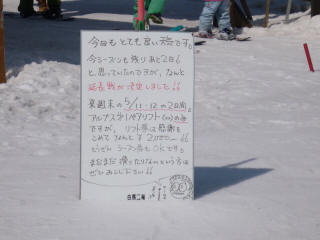 今日も とても良い天気です。
今シーズンも残りあと2日!!
と、思っていたのですが、なんと
延長戦が決定しました!!
来週末の5/11・12の2日間。
アルプス第1ペアリフト
ですが、リフト券は感謝を
こめて なんと ¥2000で〜
もちろん シーズン券も OKです。
まだまだ滑りたりないという方は
ぜひおこし下さい!!
白馬五竜